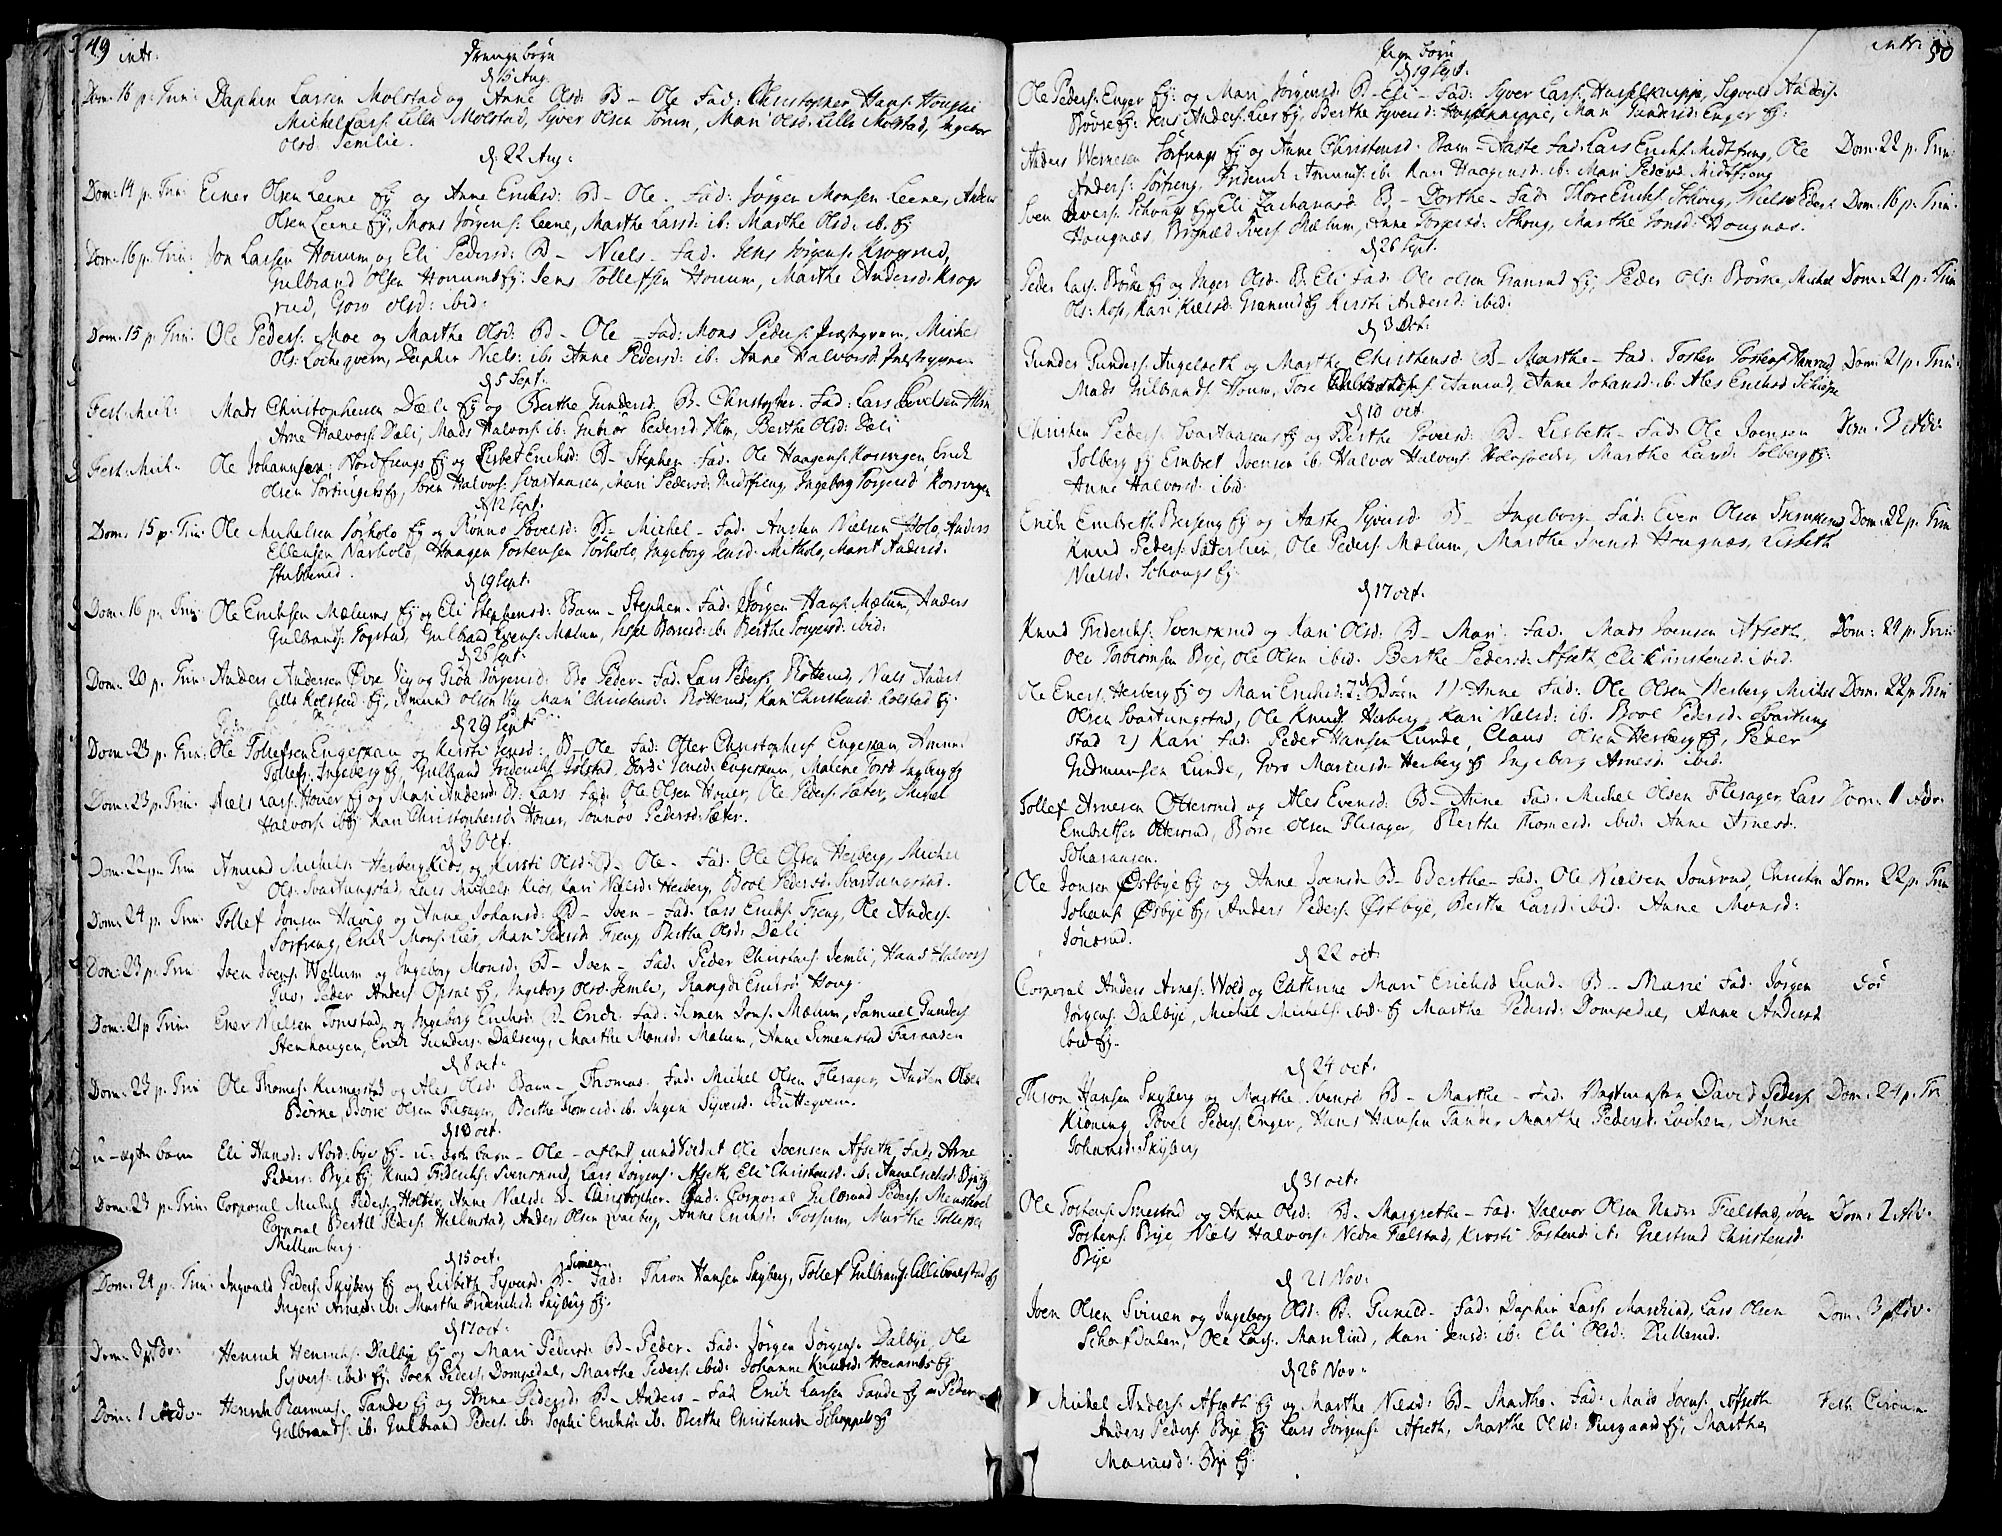 49 intr.
Drenge børn
d. 15 Aug.
Dom. 16 p. Trin: Daphin Larsen Molstad og Anne Olsd: B - Ole Fad: Christopher Hans. Hougli
Michel Lars. Lille Molstad, Syver Olsen Sorum, Mari Olsd. Lille Molstad, Ingebor
Olsd: Semlie.
d: 22 Aug:
Dom: 14 p. Trin: Einer Olsen Leene Ej og Anne Erichsd: B - Ole. Fad: Jørgen Monsen Leene, Anders
Olsen Leene Ej, Mons Jørgens: Leene, Marthe Larsd: ib: Marthe Olsd: ib. Ej
Dom: 16 p. Trin: Jon Larsen Honum og Eli Pedersd: B - Niels - Fad: Jens Jørgens: Krogsrud,
Gulbrand Olsen Honum Ej: Jens Tollefsen Honum, Marthe Andersd: Krogs
rud, Goro Olsd: ibid:
Dom: 15 p. Trin: Ole Peders: Moe og Marthe Olsd: B - Ole - Fad: Mons Peders: Præstqvern, Michel
Ols: Locheqvern, Daphin Niels: ib: Anne Pedersd: ib. Anne Halvorsd: Præstqvern
d 5 Sept:
Fest: Mich: Mads Christophersen Dæli Ej og Berthe Gundersd B - Christopher. Fad: Lars Povelsen Alm
Arne Halvors: Dæli, Mads Halvors: ib: Gubiør Pedersd: Alm, Berthe Olsd: Dæli
Fest: Mich: Ole Johannsen: Nordfrengs Ej og Lisbet Erichsd: B - Stephen Fad: Ole Haagens: Korsvegen, Erich
Olsen Sørfrengs Ej, Søren Halvors: Svartaasen, Mari Pedersd: Midtfreng, Ingeborg Torgersd: Korsvegen
d 12 Sept:
Dom: 15 p. Trin: Ole Michelsen Sørholo Ej og Rønno Povelsd: B - Michel - Fad: Austen Nielsen Holo, Anders
Ellensen Narholo, Haagen Tostensen Sørholo, Ingeborg Jensd: Mitholo, Marit Andersd:
Stubberud.
d 19 Sept:
Dom: 16 p. Trin: Ole Erichsen Mælums Ej og Eli Stephensd: Barn - Stephen - Fad: Jørgen Hans: Mælum, Anders
Gulbrands: Fogstad, Gulbrand Evens: Mælum, Sisel Børresd: ib. Berthe Torgersd: ibid:
d 26 Sept:
Dom: 20 p. Trin: Anders Andersen Øvre Vig og Gjøa Jørgensd: B - Peder - Fad: Lars Peders: Rotterud, Niels Anders
Lille Kolstad Ej, Amund Olsen Vig Mari Christensd: Rotterud, Kari Christensd: Kolstad Ej.
d 29 Sept
Dom: 23 p. Trin: Ole Tollefsen Engeskau og Kirsti Jensd: B - Ole Fad: Otter Christophers Engeskau, Amun:
Tollefs: Ingeberg Ej, Gulbrand Friderichs Jolstad, Dordi Jensd: Engeskaun, Malene Torsd: Ingeberg Ej
Dom: 23 p. Trin: Niels Lars: Houer Ej og Mari Andersd: B: Lars Fad: Ole Olsen Houer, Ole Peders: Sæter, Michel
Halvors: ib Ej Kari Christophersd: Houer, Sønnøv Pedersd: Sæter.
d 3 Oct.
Dom: 22 p. Trin Amund Michels: Herberg Kios, og Kirsti Olsd: B - Ole - Fad: Ole Olsen Herberg, Michel
Ols: Svartungstad, Lars Michels Kios, Kari Nielsd: Herberg, Bool Pedersd: Svartungstad.
Dom: 24 p. Trin: Tollef Jonsen Havig og Anne Johansd: B - Joen - Fad: Lars Erichs: Freng, Ole Anders:
Sorfreng, Erich Mons: Lier, Mari Pedersd: Freng, Berthe Olsd: Dæli
Dom: 23 p. Trin Joen Joens: Wollum og Ingeborg Monsd: B - Iven - Fad: Peder Christians: Semli, Hans Halvors:
Juv, Peder Anders Opsal Ej, Ingeborg Olsd: Semle, Rangdi Erichsd Houg.
Dom: 21 p Trin: Ener Nielsen Tomstad, og Ingeborg Erichsd: B - Erich. Fad: Simen Jons: Mælum, Samuel Gunders
Stenhaugen, Erich Gunders: Dalseng, Marthe Monsd: Mælum, Anne Simenstad Faraasen
d 8 oct:
Dom: 23 p. Trin Ole Thomes: Kumerstad og Ales Olsd: Barn - Thomas. Fad: Michel Olsen Flesager, Austen Olsen
Børne, Børre Olsen Flesager, Berthe Thomesd: ib. Ingeri Syversd: Butteqvern.
d 10 oct:
u-ægte barn Eli Hansd: Nordbye Ej - u-ægte barn - Ole - aflet med Soldat Ole Joensen Afseth, Fad: Arne
Peders: Bye Ej: Knud Friderichs: Svensrud, Lars Jørgens: Afseth, Eli Christensd: ib. Anne Larsd: Bye Ej
Dom: 23 p. Trin: Corporal Michel Peders: Holter, Anne Nielsd: B - Christopher. Fad: Corporal Gulbrand Peders: Menskoel
Corporal Bertel Peders: Hielmstad, Anders Olsen Qvæberg, Anne Erichsd: Fossum, Marthe Tollefsd
Mellemberg.
d 15 oct: Simen
Dom: 24 p. Trin: Ingvold Peders: Skyberg Ej og Lisbeth Syversd: B - Fad: Thron Hansen Skyberg, Tollef Gulbrands: Lillebaalstad Ej
Ingeri Arnesd: ib: Marthe Friderichsd: Skyberg Ej.
d 17 oct:
Dom: 3 p Adv: Henrich Henrichs: Dalbye Ej og Mari Pedersd: B - Peder. Fad: Jørgen Jørgens: Dalbye, Ole
Syvers: ibid Ej: Joen Peders: Domsedal, Marthe Pedersd: ibid: Johanne Knudsd: Heramb Ej
Dom: 1 Adv - Henrich Rasmus: Tande Ej og Anne Pedersd: B - Anders - Fad Erich Larsen Tande Ej Peder
Gulbrands: ib: Gulbrand Peders: ib: Sophi Erichsd: ib. Berthe Christensd: Schoppel Ej
intr. 50
Pige børn
d 19 Sept:
Ole Peders: Enger Ej: og Mari Jørgensd: B - Eli - Fad: Syver Lars: Hasselknippe, Segvold Anders:
Børre Ej: Jens Anders: Lier Ej, Berthe Syversd: Hasselknippe, Mari Gundersd: Enger Ej:
Anders Wernesen Sørfrengs Ej og Anne Christensd: Barn - Aaste Fad: Lars Erichs: Midtfreng, Ole Dom: 22 p. Trin:
Anders: Sørfreng, Friderich Amunds: ib. Kari Haagensd: ib: Mari Pedersd: Midtfreng
Sven Sivers: Schougs Ej Eli Zachariasd: B - Dorthe - Fad: Thore Erichs: Solberg, Niels Peders: Dom: 16 p. Trin:
Hougnæs, Brynild Ivers Mælum, Anne Torgersd: Schoug, Marthe Jonsd: Hougnæs.
d 26 Sept.
Peder Lars: Børke Ej og Inger Olsd. B. Eli Fad: Ole Olsen Granrud Ej, Peder Ols: Børne, Michel Dom: 21 p. Trin
Ols: Kops, Kari Nielsd: Granrud Ej Kirsti Andersd: ibid:
d 3 Oct:
Gunder Gunders: Angelseth og Marthe Christensd: B - Marthe - Fad. Tosten Tostens: Hanrud, Dom: 21 p. Trin:
Mads Gulbrands: Houm, Tore Hanrud, Anne Johansd: ib. Ales Erichsd: Schage
d 10 oct.
Christen Peders: Svartaasens Ej og Berthe Povelsd: B - Lisbeth - Fad: Ole Joensen Dom. 3 Adv:
Solberg Ej Embret Joensen ib. Halvor Halvors: Holmsveen, Marthe Larsd: Solberg Ej:
Anne Halvorsd: ibid:
Erich Embrets: Berseng Ej og Aaste Syversd: B - Ingeborg - Fad: Even Olsen Skrepsrud Dom: 22 p. Trin
Knud Peders: Sæterlien, Ole Peders: Mælum, Marthe Svensd: Hougnæs, Lisbeth
Nielsd: Schougs Ej.
d 17 oct.
Knud Friderichs: Svensrud og Kari Olsd: B - Mari. Fad. Mads Joensen Afseth, Dom: 24 p. Trin
Ole Torbiørnsen Bye, Ole Olsen ibid. Berthe Pedersd: Afseth, Eli Christensd: ibid.
Ole Eners: Herberg Ej og Mari Erichsd: 2 Børn 1) Anne Fad: Ole Olsen Herberg, Michel Dom: 22 p Trin
Olsen Svartungstad, Ole Knuds: Herberg, Kari Nielsd: ib. Bool Pedersd: Svartung
stad 2) Kari Fad: Peder Hansen Lunde, Claus Olsen Herberg Ej, Peder
Gudmunsen Lunde, Goro Mariusd: Herberg Ej Ingeborg Arnesd: ibid.
Tollef Arnesen Otterud og Ales Evensd: B - Anne Fad: Michel Olsen Flesager, Lars Dom: 1 Adv:
Embretsen Otterud, Børre Olsen Flesager, Berthe Thomesd: ibid: Anne Arnesd:
Scharaasen.
Ole Jonsen Østbye Ej og Anne Joensd: B - Berthe - Fad: Ole Nielsen Jonsrud, Christen Dom. 22 p. Trin
Johans: Østbye Ej: Anders Peders: Østbye, Berthe Larsd: ibid: Anne Monsd:
Jonsrud.
d 22 oct.
Corporal Anders Arnes: Wold og Cathrine Mari Erichsd Lund. B - Marie Fad: Jørgen
Jørgens: Dalbye, Michel Michels: ibid: Ej Marthe Pedersd: Domsedal, Anne Andersd
ibid Ej.
d 24 oct:
Thron Hansen Skyberg og Marthe Svensd: B - Marthe - Fad: Vagtmester David Peders: Dom: 24 p. Tr
Kiøning, Povel Peders: Enger, Hans Hansen Tande, Marthe Pedersd: Lochem, Anne
Johansd: Skyberg
d 31 oct:
Ole Tostens: Smestad og Anne Olsd: B - Margrethe - Fad: Halvor Olsen Nedre Fielstad, Joen Dom: 2 Adv.
Tostens: Bye, Niels Halvors: Nedre Fielstad, Kirsti Tostensd: ib. Giertrud Christensd:
Bye
d 21 Nov:
Joen Olsen Svinen og Ingeborg Olsd: B. Gunild - Fad: Daphin Lars: Markrud, Lars Olsen Dom: 3 Adv.
Schafsdalen, Ole Lars: Markrud, Kari Jensd: ib: Eli Olsd: Dullerud.
d 28 Nov:
Michel Anders: Afseth Ej og Marthe Nielsd: B - Marthe. Fad: Mads Joens: Afseth Fest: Circum
Anders Peders: Bye Ej Lars Jørgens: Afseth, Marthe Olsd: Burgaard Ej, Marthe
Mariusd: Bye Ej: